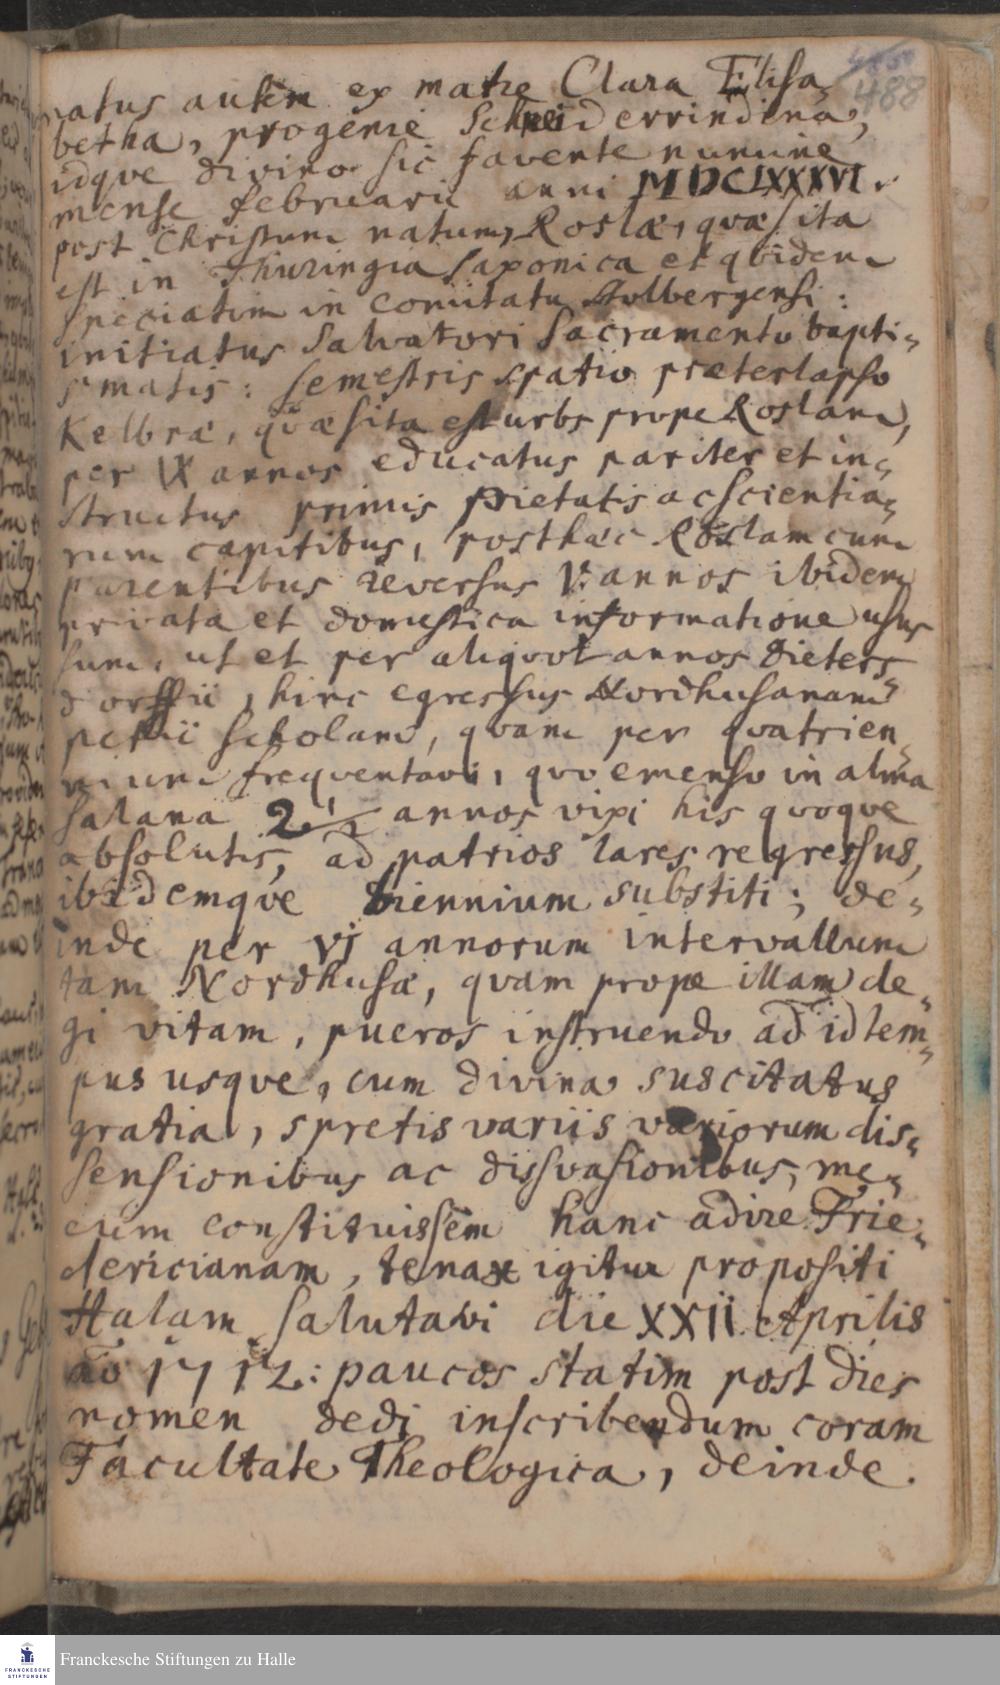 488
natus autem ex matre Clara Elisa
betha, progenie Schneiderrindina,
idqve divino sic favente numine
mense februarii anni MDCLXXXVI.
post Christum natum, Roslæ, quæ sita
est in Thuringia Saxonica et qvidem
speciatim in Comitatu Stolbergensi:
initiatus Salvatori Sacramento bapti-
smatis: semestris spatio præterlapso
Kelbræ, qvæ sita est urbs prope Roslam,
per IX annos educatus pariter et in-
structus primis pietatis ac scientia-
rum capitibus, posthæc Roslam cum
parentibus reversus V. annos ibidem
privata et domestica informatione usus
sum, ut et per aliqvot annos Dieters-
dorffii, hinc egressus Nordhusanam
petii scholam, qvam per qvatrien-
nium freqventavi, qvo emenso in alma
Salana 2 1/2 annos vixi his quoqve
absolutis, ad patrios lares regressus,
ibidemqve biennium substiti; de-
inde per VI annorum intervallum
tam Nordhusæ, qvam prope illam de-
gi vitam, pueros instruendo ad id tem-
pus usqve, cum divina suscitatus
gratia, spretis variis variorum dis-
sensionibus ac dissvasionibus, me-
cum constituissem hanc adire Frie-
dericianam, tenax igitur propositi
Halam salutavi die XXII. Aprilis
ao 1712: paucos statim post dies
nomen dedi inscribendum coram
Facultate Theologica, deinde.
FRANCKESCHE
STIFTUNGEN
Franckesche Stiftungen zu Halle